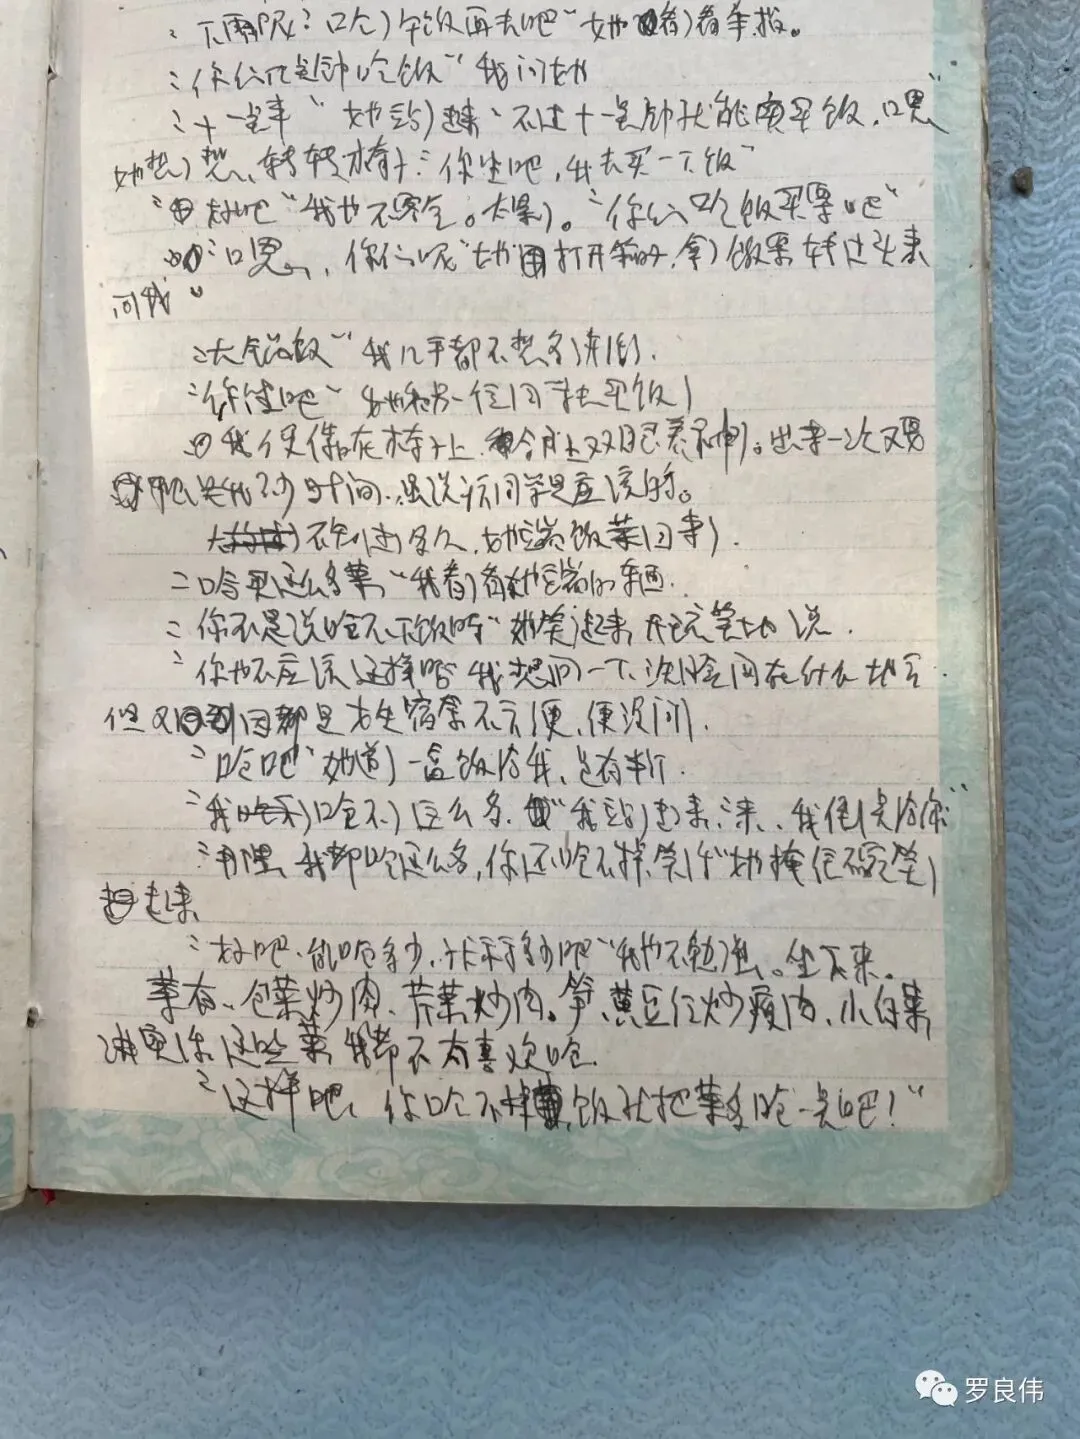 下雨呢？吃了午饭再去吧"她看了看手报。
"你们几点钟吃饭"我问她
"十一点半"她站了起来"不过十一点钟就能买饭，
她想了想、转转椅子："你坐吧，我去买一下饭"
"好吧"我也不客气。"你们吃饭买票吧"
"嗯、你们呢"她打开箱子，拿了饭票转过头来
问我"
"大锅饭"我几乎都不想多讲的。
"你坐吧"她和另一位同去买饭了
我便靠在椅子上，合上双目养神。出来一次又要
不少时间，虽说访同学是应该的。
不知过了多久，她端饭菜回来了。
"哈买这么多菜"我看了看她端的东西。
"你不是说吃不下饭吗"她笑了起来开玩笑地说。
"你也不应该这样啊"我想问一下洗脸间在什么地方。
但又因都是女生宿舍不方便，便没问了。
"吃吧"她递了一盒饭给我，足有半斤。
"我吃不了这么多，"我站了起来"来、我倒些给你"
我都吃这么多，你还吃不掉，笑"她掩住不笑
起来
"好吧、能吃多少，就吃多少吧"我也不勉强。坐下来。
菜有、包菜炒肉、芹菜炒肉。笋、黄豆仁炒瘦肉、小白菜
这些菜我都不太喜欢吃。
"这样吧、你吃不掉饭就把菜多吃一点吧！"
罗良伟